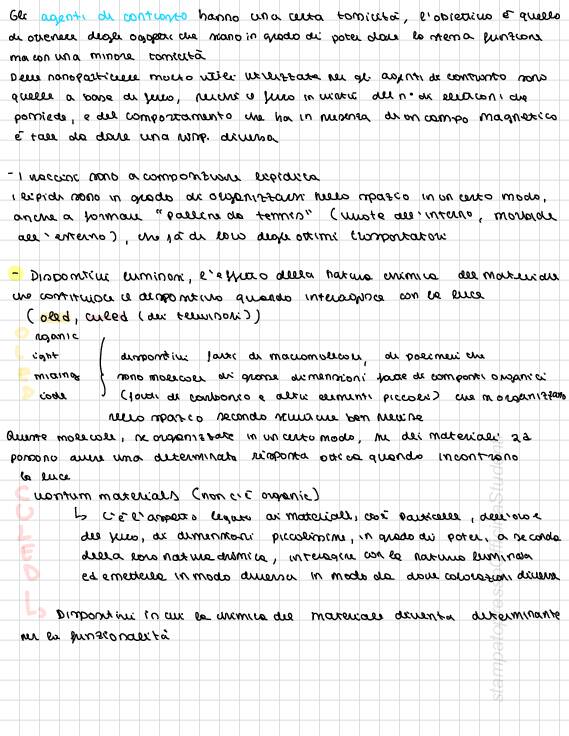 Gli agenti di contrasto hanno una certa tossicità, l'obiettivo è quello
di ottenere degli oggetti che siano in grado di poter dare la stessa funzione
ma con una minore tossicità
Delle nanoparticelle molto utili utilizzate per gli agenti di contrasto sono
quelle a base di ferro, perché il ferro in virtù del n° di elettroni che
possiede, e del comportamento che ha in presenza di un campo magnetico
è tale da dare una risp. diversa
- I vaccini sono a composizione lipidica
i lipidi sono in grado di organizzarsi nello spazio in un certo modo,
anche a formare "palline da tennis" (vuote all'interno, morbide
all'esterno), che fa di loro degli ottimi trasportatori
- Dispositivi luminosi, l'effetto della natura chimica del materiale
che costituisce il dispositivo quando interagisce con la luce
(oled, culed (dei televisori))
O rganic
L ight
E mitting
D iode
dispositivi fatti di macromolecole, di polimeri che
sono molecole di grosse dimensioni fatte di composti organici
(fatti di carbonio e altri elementi piccoli) che si organizzano
nello spazio secondo schemi ben precisi
Queste molecole, se organizzate in un certo modo, su dei materiali 2D
possono avere una determinata risposta ottica quando incontrano
la luce
CULED
uantum materials (non c'è organic)
↳ c'è l'aspetto legato ai materiali, cioè particelle, dell'oro e
del ferro, di dimensioni piccolissime, in grado di poter, a seconda
della loro natura chimica, interagire con la natura luminosa
ed emetterla in modo diversa in modo da dare colorazioni diverse
↳ Dispositivi in cui la chimica del materiale diventa determinante
per la funzionalità